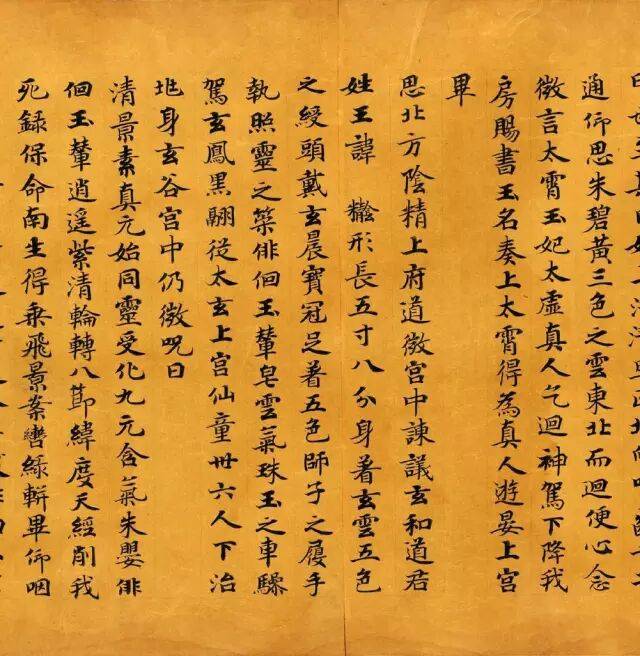 通仰思朱碧黃三色之雲東北而迴便心念
微言太霄玉妃太虛真人乞迴神駕下降我
房賜書玉名奏上太霄得為真人遊晏上宮
畢
思北方陰精上府道微宮中諫議玄和道君
姓王諱 形長五寸八分身著玄雲五色
之綬頭戴玄晨寶冠足著五色師子之履手
執照靈之策俳佪玉輦皂雲氣珠玉之車驂
駕玄鳳黑翮從太玄上宮仙童卅六人下治
兆身玄谷宮中仍微呪曰
清景素真元始同靈受化九元含氣朱嬰俳
佪玉輦逍遙紫清輪轉八節緯度天經削我
死錄保命南生得乘飛景案轡綠軿畢仰咽